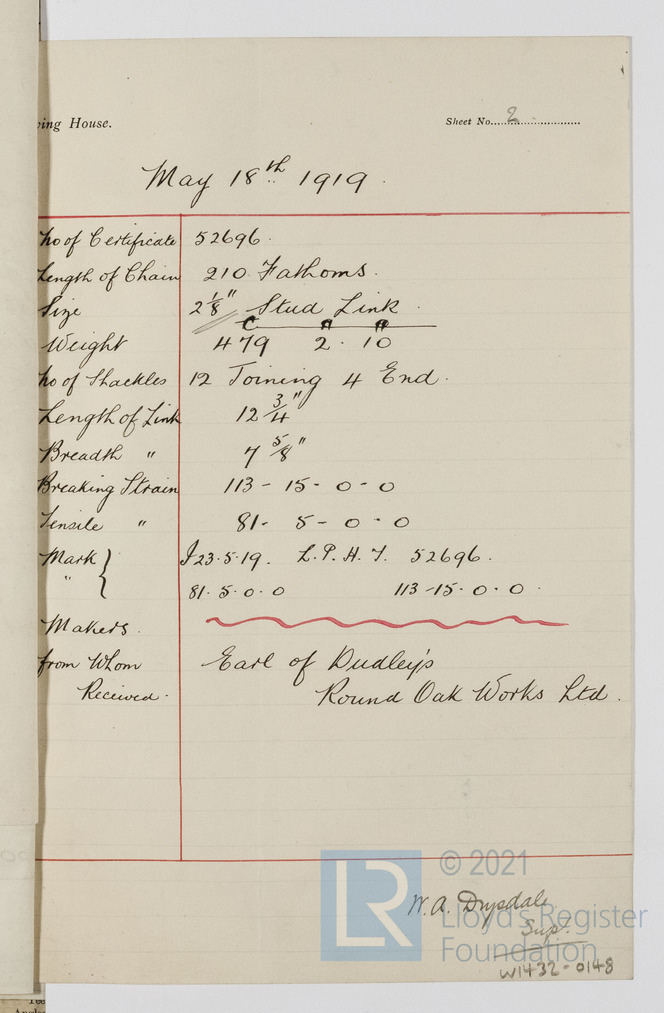 ping House.
Sheet No. 2
May 18th 1919.
No of Certificate 52696.
Length of Chain 210 Fathoms.
Size 2 1/8" Stud Link
C " "
Weight 479 2. 10
No of Shackles 12 Joining 4 End.
Length of Link 12 3/4"
Breadth " 7 5/8"
Breaking Strain 113 - 15 - 0 - 0
Tensile " 81 - 5 - 0 - 0
Mark } 23.5.19. L.P.H.T. 52696.
" 81.5.0.0 113-15.0.0.
Makers.
from Whom Earl of Dudley's
Received. Round Oak Works Ltd.
© 2021
W. A. Drysdale
Lloyd's Register
Supt.
Foundation
LR
W1432-0148